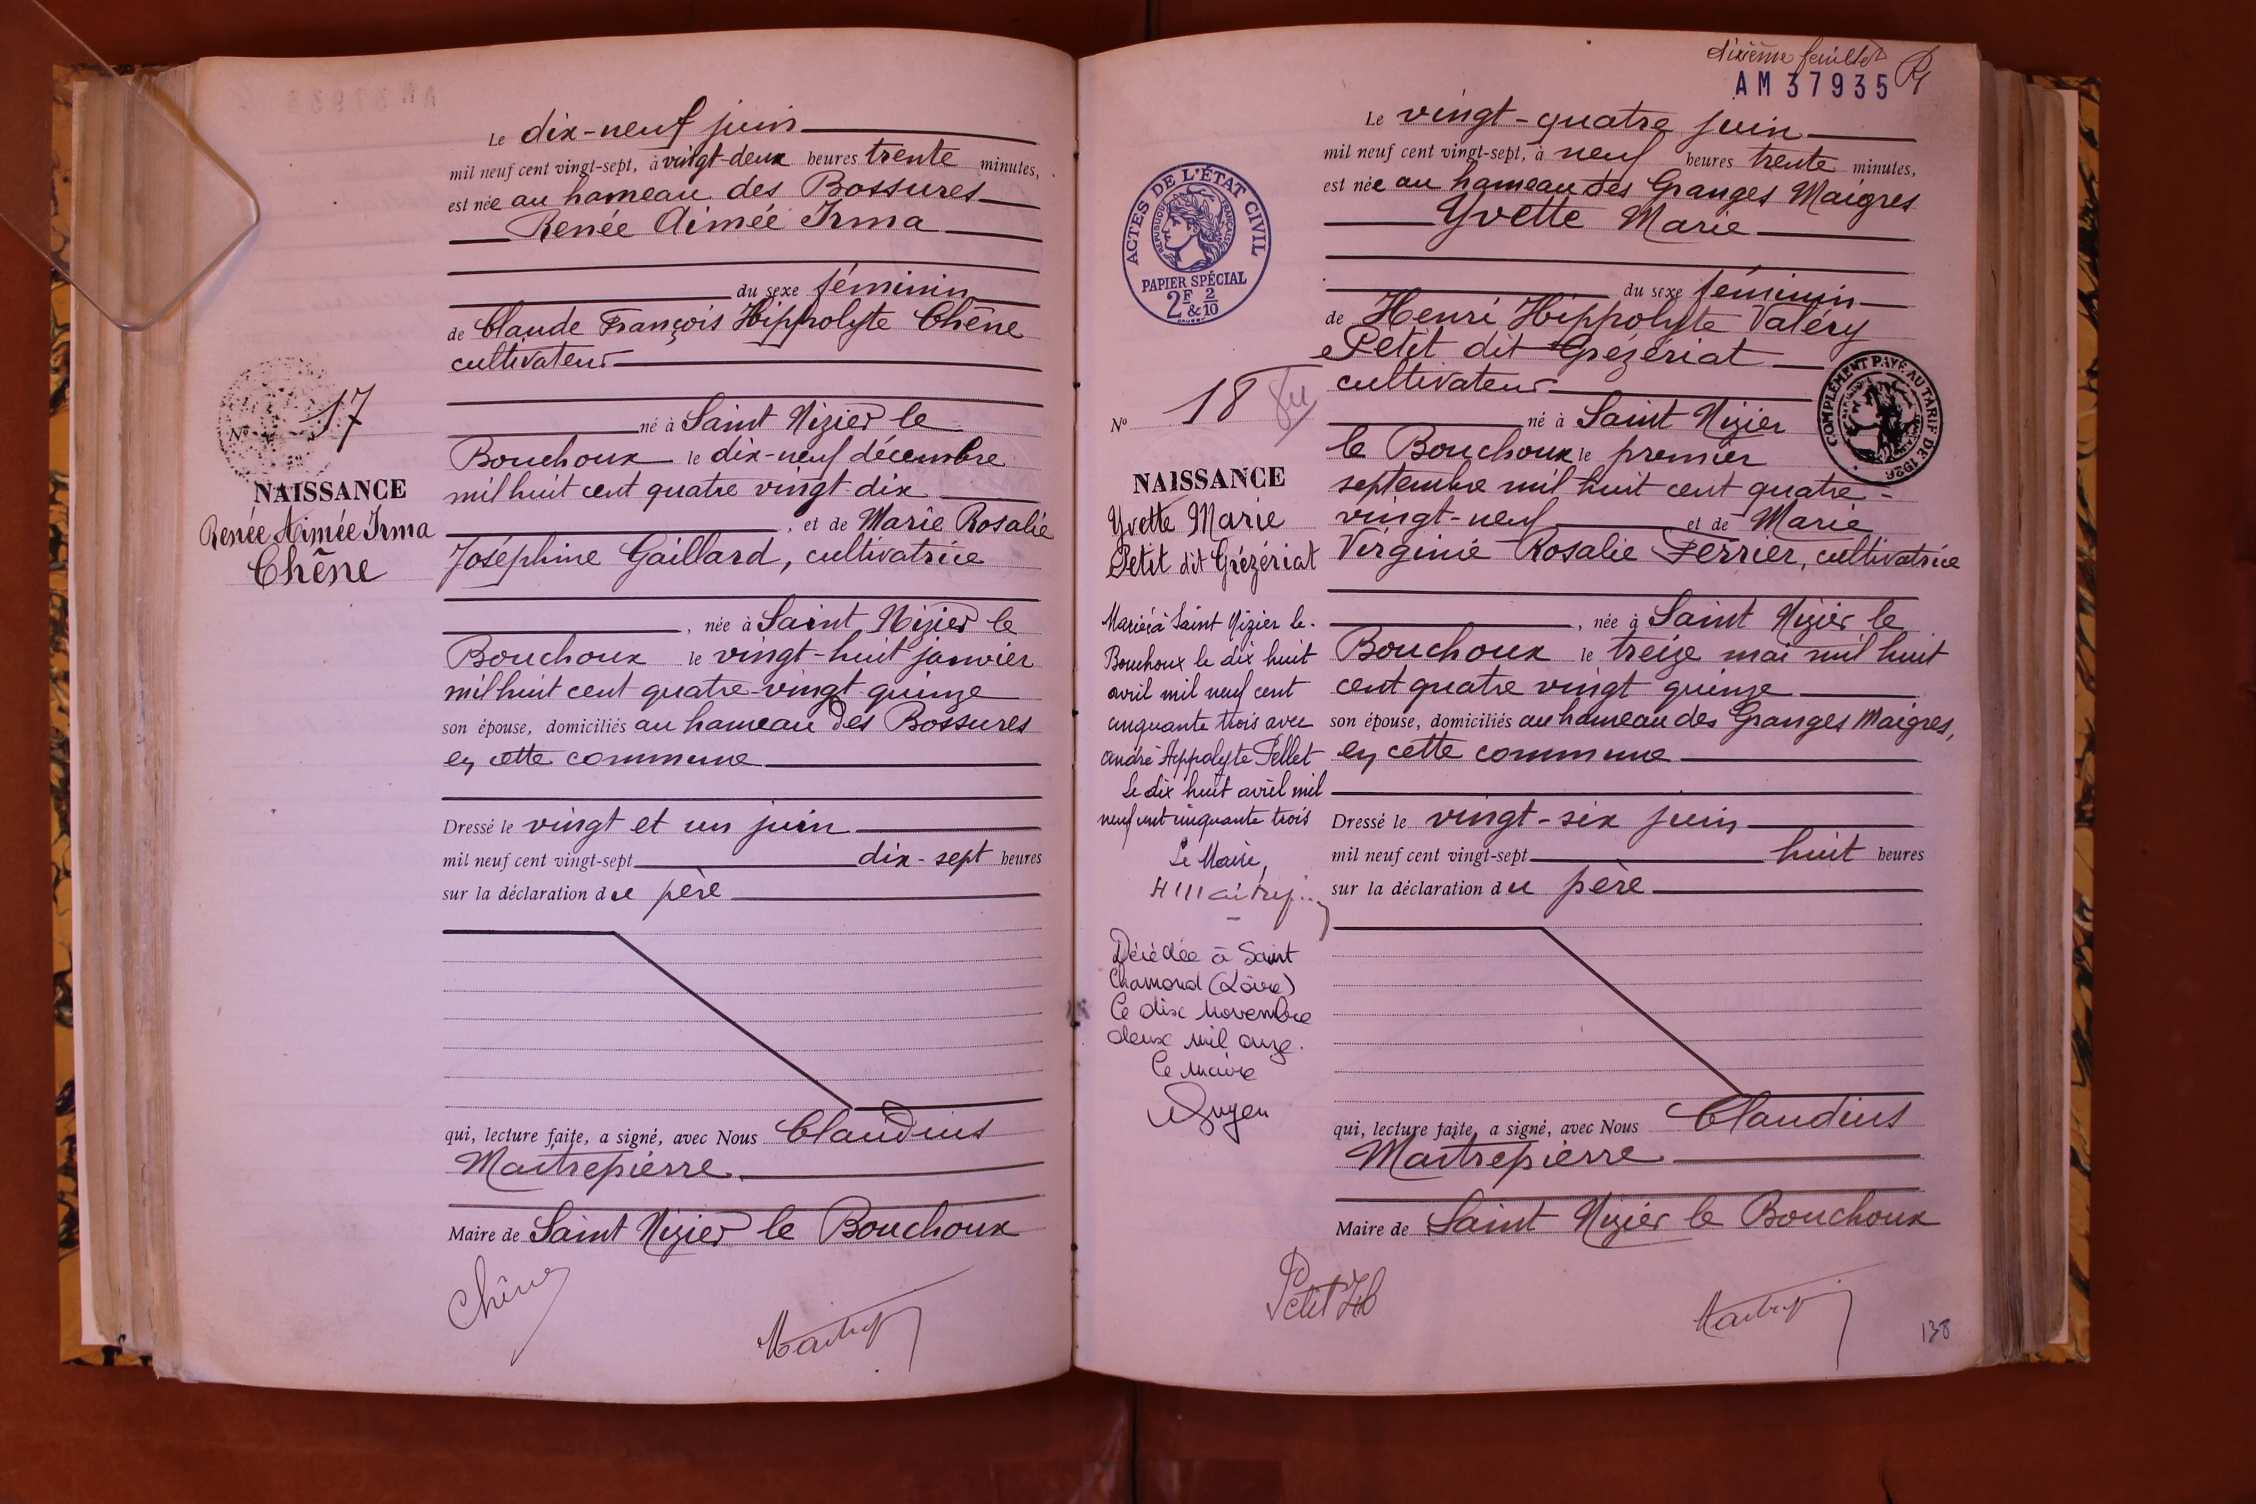 Le dix-neuf juin
mil neuf cent vingt-sept, à vingt-deux heures trente minutes,
est née au hameau des Bossures
Renée Aimée Irma
du sexe féminin
de Claude François Hippolyte Chêne
cultivateur
né à Saint Nizier le
Bouchoux le dix-neuf décembre
mil huit cent quatre vingt-dix
, et de Marie Rosalie
Joséphine Gaillard, cultivatrice
, née à Saint Nizier le
Bouchoux le vingt-huit janvier
mil huit cent quatre-vingt-quinze
son épouse, domiciliés au hameau des Bossures
en cette commune
Dressé le vingt et un juin
mil neuf cent vingt-sept dix-sept heures
sur la déclaration du père
qui, lecture faite, a signé, avec Nous Claudius
Maitrepierre
Maire de Saint Nizier le Bouchoux
Chêne
N° 17
NAISSANCE
Renée Aimée Irma
Chêne
dixième feuillet
AM 37935
Le vingt-quatre juin
mil neuf cent vingt-sept, à neuf heures trente minutes,
est née au hameau des Granges Maigres
Yvette Marie
du sexe féminin
de Henri Hippolyte Valéry
Petit dit Grézériat
cultivateur
né à Saint Nizier
le Bouchoux le premier
septembre mil huit cent quatre-
vingt-neuf et de Marie
Virginie Rosalie Perrier, cultivatrice
, née à Saint Nizier le
Bouchoux le treize mai mil huit
cent quatre vingt quinze
son épouse, domiciliés au hameau des Granges Maigres,
en cette commune
Dressé le vingt-six juin
mil neuf cent vingt-sept huit heures
sur la déclaration du père
qui, lecture faite, a signé, avec Nous Claudius
Maitrepierre
Maire de Saint Nizier le Bouchoux
Petit
138
ACTES DE L'ÉTAT CIVIL
RÉPUBLIQUE FRANÇAISE
PAPIER SPÉCIAL
2F & 2/10
COMPLÉMENT PAYÉ AU TARIF DE 1926
N° 18
NAISSANCE
Yvette Marie
Petit dit Grézériat
Mariée à Saint Nizier le-
Bouchoux le dix huit
avril mil neuf cent
cinquante trois avec
André Hippolyte Pellet
Le dix huit avril mil
neuf cent cinquante trois
Le Maire,
Décédée à Saint
Chamond (Loire)
le dix novembre
deux mil onze.
Le Maire